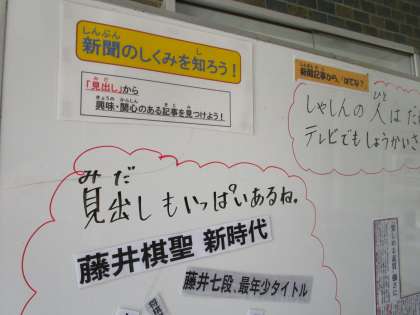 しんぶん　し
新聞のしくみを知ろう！
みだ
「見出し」から
きょうみ　かんしん　きじ　み
興味・関心のある記事を見つけよう！
新聞記事から、はてな？
ひと
しゃしんの人はだれ
テレビでもしょうかいさ
みだ
見出しもいっぱいあるね。
藤井棋聖 新時代
藤井七段、最年少タイトル